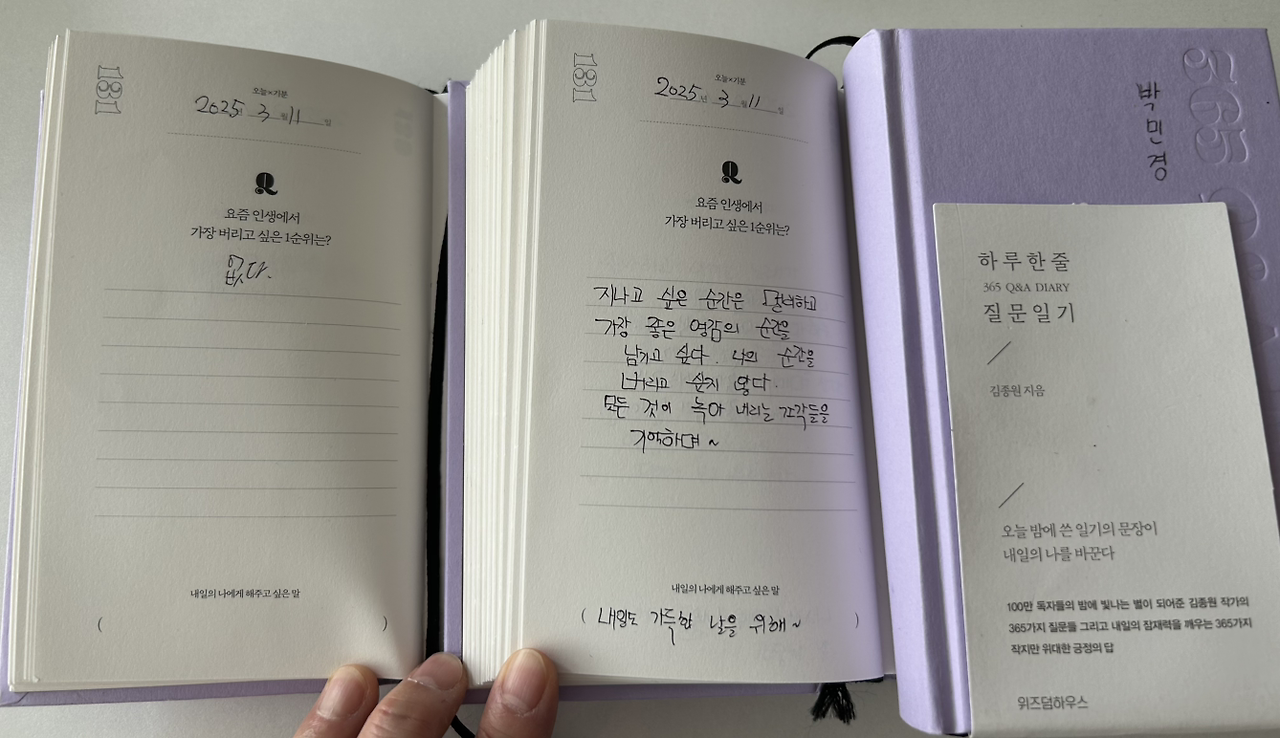 131
오늘×기분
2025년 3월 11일
Q
요즘 인생에서
가장 버리고 싶은 1순위는?
없다.
내일의 나에게 해주고 싶은 말
( )
131
오늘×기분
2025년 3월 11일
Q
요즘 인생에서
가장 버리고 싶은 1순위는?
지나고 싶은 순간은
가장 좋은 영감의 순간을
남기고 싶다. 나의 순간을
버리고 싶지 않다.
모든 것이 녹아 내리는 조각들을
기억하며~
내일의 나에게 해주고 싶은 말
( 내일도 가득한 날을 위해~ )
365
박민경
하루한줄
365 Q&A DIARY
질문일기
김종원 지음
오늘 밤에 쓴 일기의 문장이
내일의 나를 바꾼다
100만 독자들의 밤에 빛나는 별이 되어준 김종원 작가의
365가지 질문들 그리고 내일의 잠재력을 깨우는 365가지
작지만 위대한 긍정의 답
위즈덤하우스